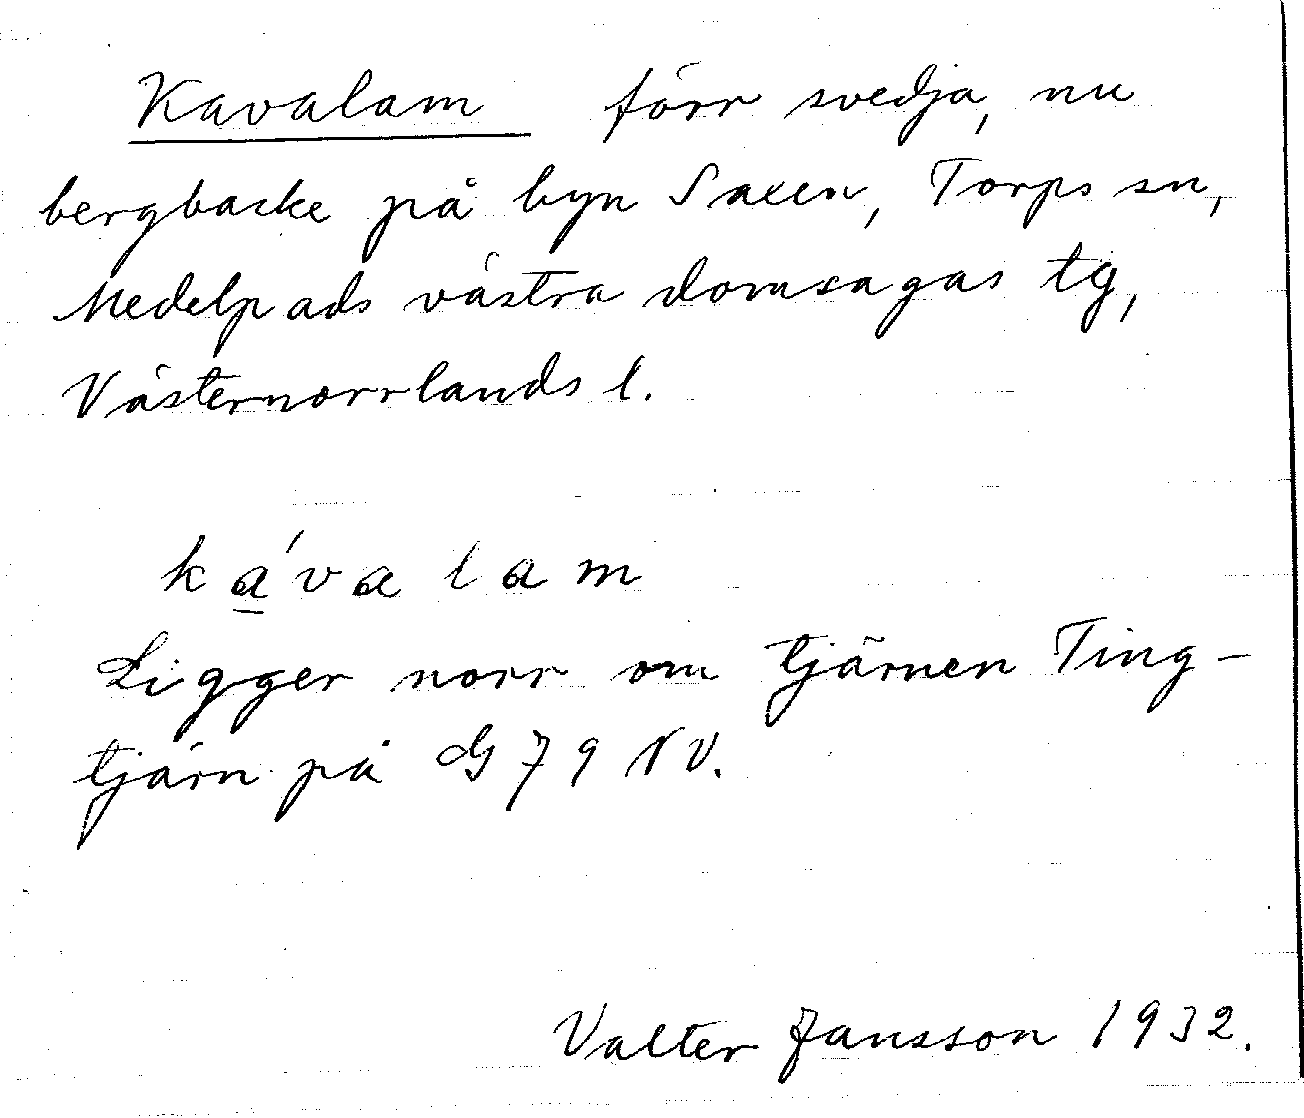 Kavalam förr svedja, nu
bergbacke på byn Saxen, Torps sn,
Medelpads västra domsagas tg,
Västernorrlands l.
ka̲´valam
Ligger norr om tjärnen Ting-
tjärn på G 79 NV.
Valter Jansson 1932.